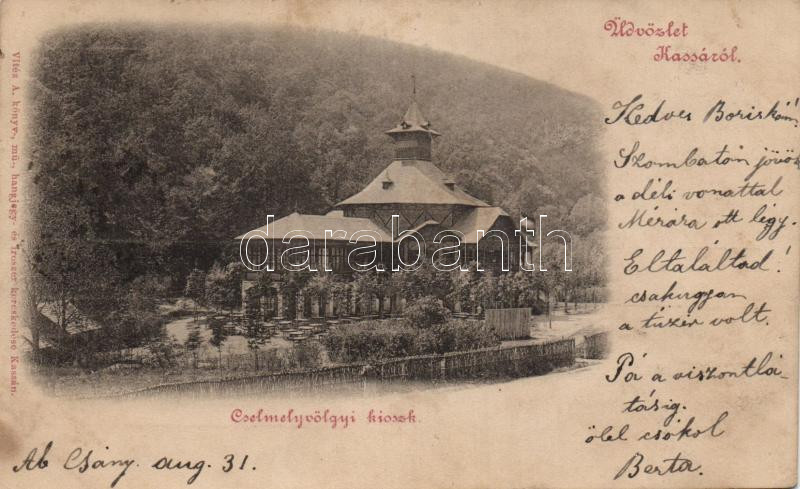 Üdvözlet
Kassáról.
Kedves Boriskám!
Szombaton jövök
a déli vonattal
Mérára ott légy.
Eltaláltad!
csakugyan
a tüzér volt.
Pá a viszontlá-
tásig.
ölel csókol
Berta.
darabanth
Cselmelyvölgyi kioszk.
Ab Csány. aug. 31.
Vitéz A. könyv-, mű-, hangjegy- és
kereskedése Kassán.